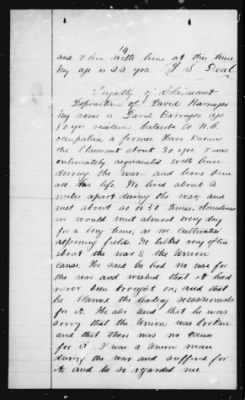 19
and I live with him at this time
My age is 22 yrs. J. S. Deal
Loyalty of Claimant
Deposition of David Barringer
My name is David Barringer age
50 yrs residence Catawba Co N.C.
occupation a farmer. Have known
the Claimant about 30 yrs. I was
intimately acquainted with him
during the war and have been
all his life. We lived about 2
miles apart during the war and
met about as or Sometimes
we would meet almost every day
for a long time, as we cultivated
adjoining fields. We talked very often
about the war & the Union
cause. He said he had no use for
the war and wished that it had
never been brought on, and that
he blamed the secessionists
for it. He also said that he was
sorry that the Union was broken
and that there was no cause
for it. I was a Union man
during the war and suffered for
it and he so regarded me